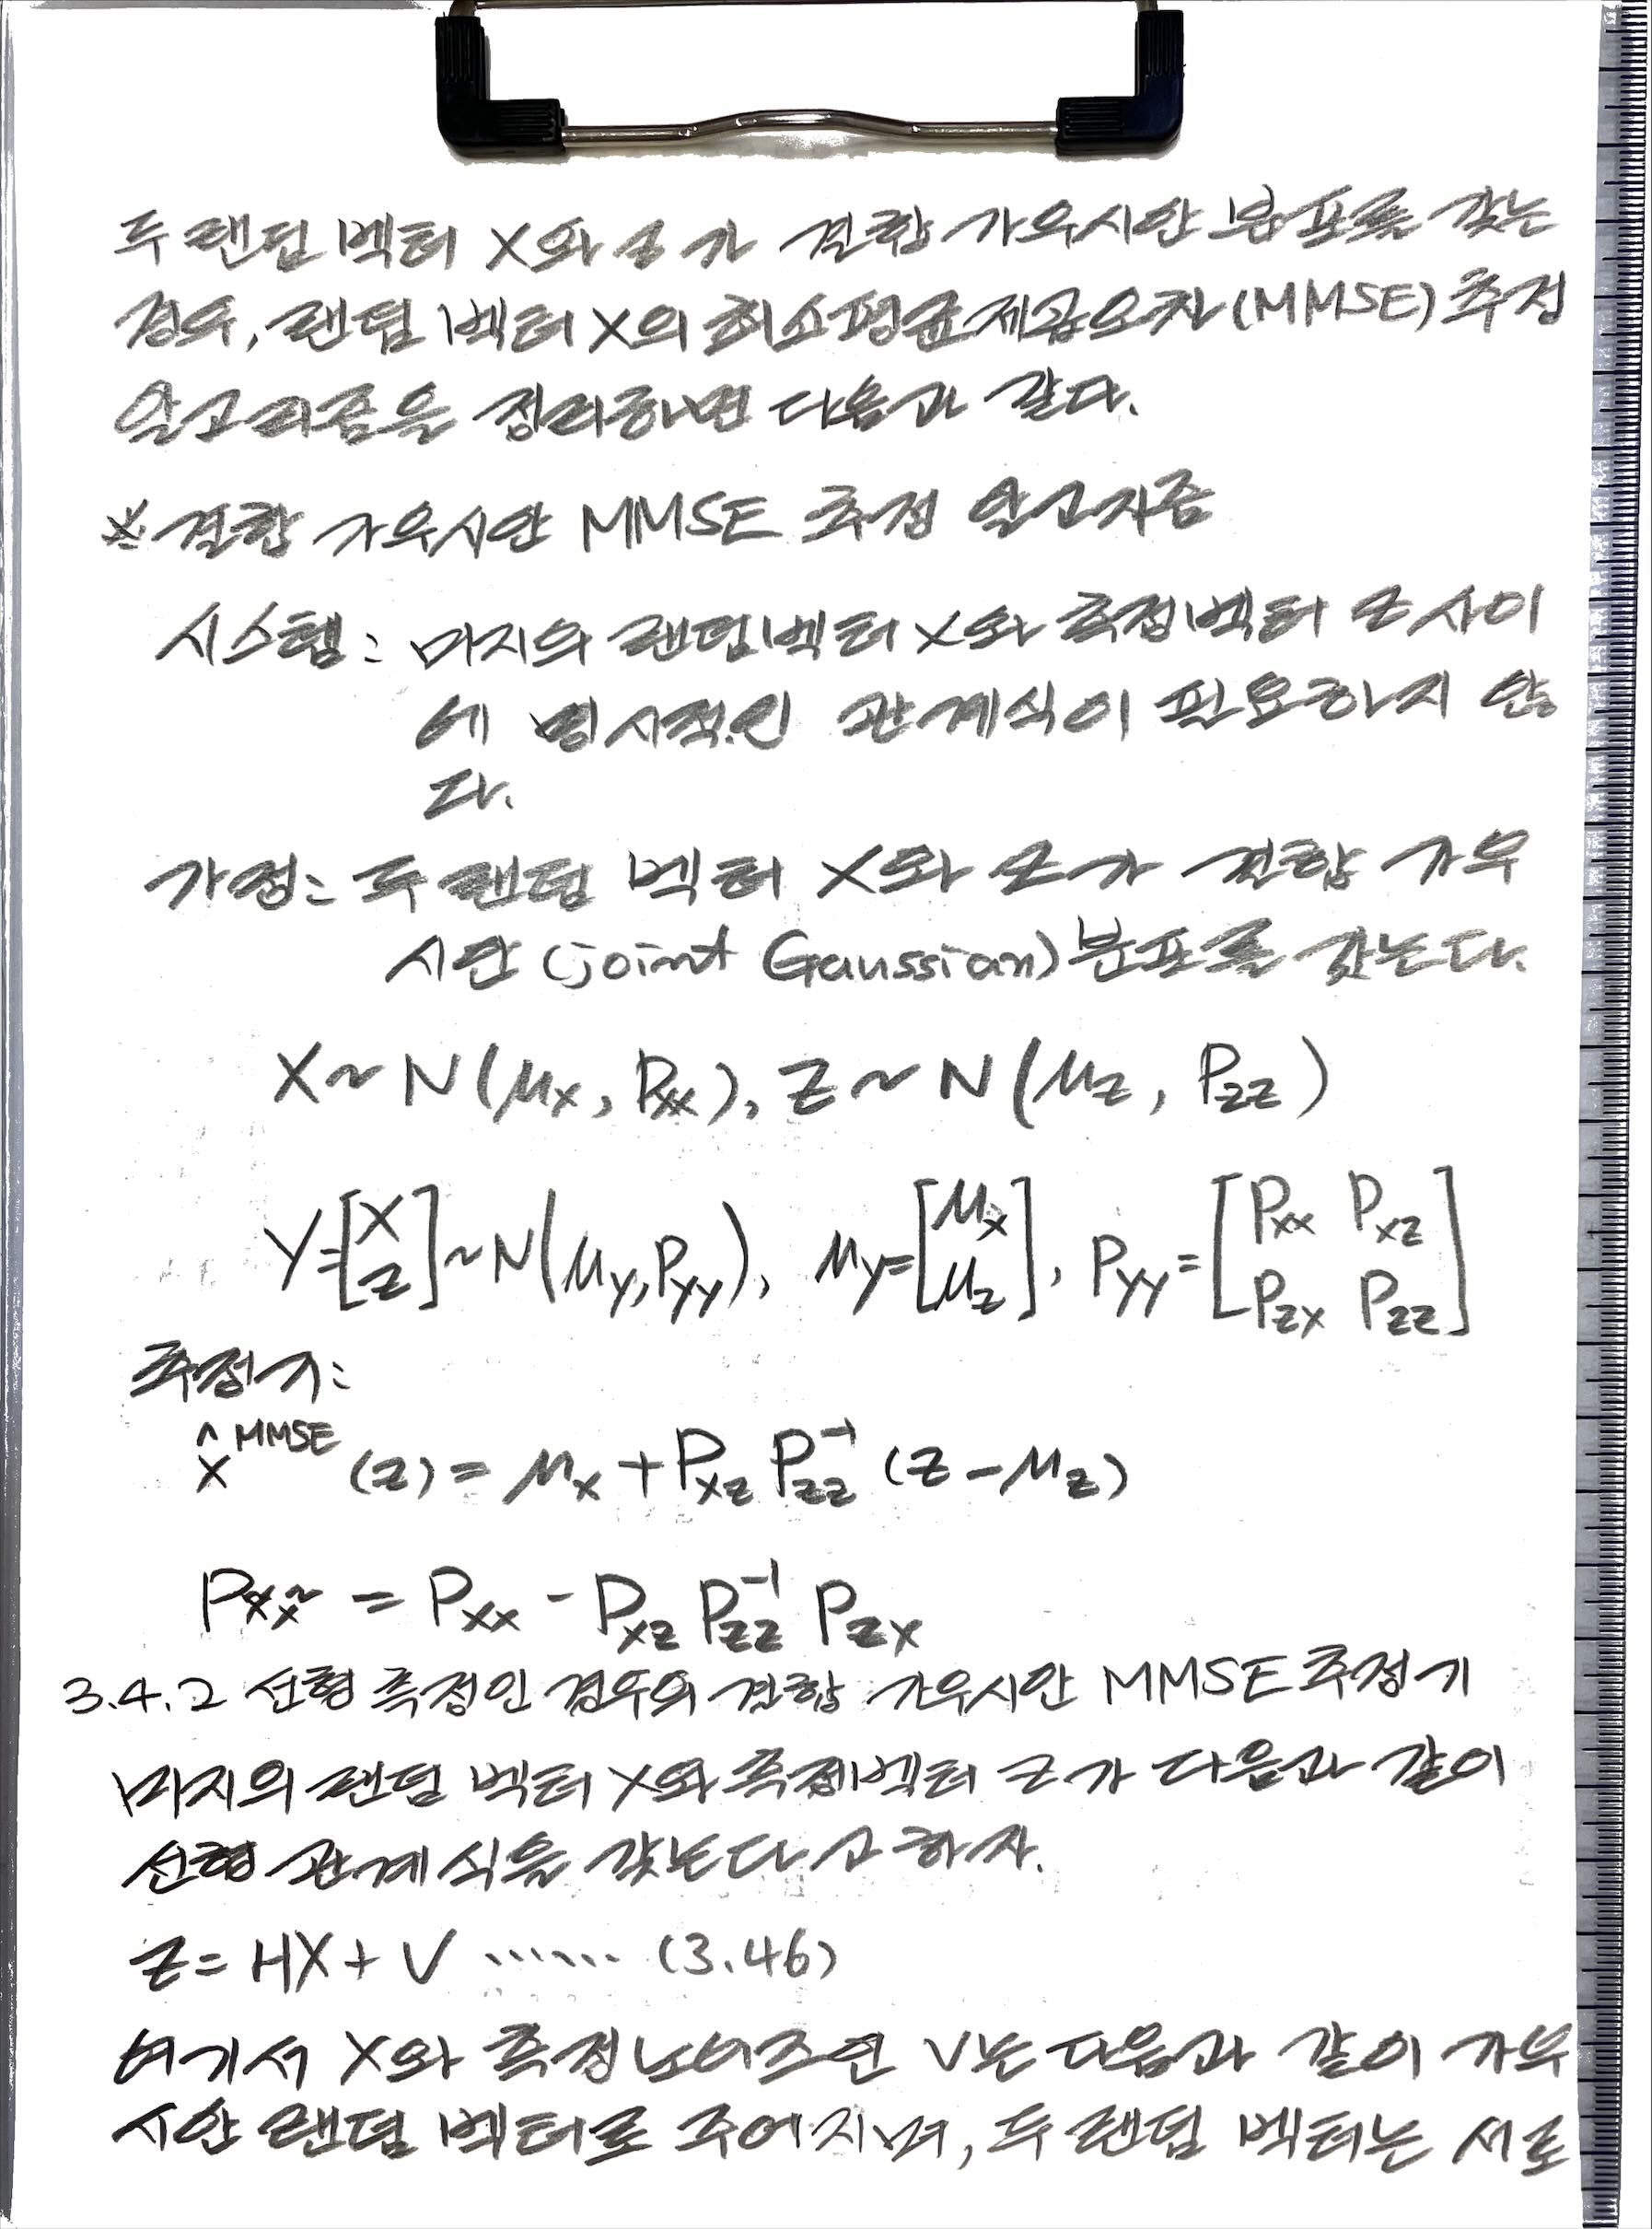 두 랜덤 벡터 X와 Z가 결합 가우시안 분포를 갖는
경우, 랜덤 벡터 X의 최소평균제곱오차(MMSE) 추정
알고리즘을 정리하면 다음과 같다.
※ 결합 가우시안 MMSE 추정 알고리즘
시스템: 미지의 랜덤벡터 X와 측정벡터 Z 사이
에 명시적인 관계식이 필요하지 않
다.
가정: 두 랜덤 벡터 X와 Z가 결합 가우
시안 (joint Gaussian) 분포를 갖는다.
X ~ N(μ_X, P_XX), Z ~ N(μ_Z, P_ZZ)
Y = [X; Z] ~ N(μ_Y, P_YY), μ_Y = [μ_X; μ_Z], P_YY = [P_XX P_XZ; P_ZX P_ZZ]
추정기:
x̂^MMSE (z) = μ_X + P_XZ P_ZZ^-1 (z - μ_Z)
P_X̃X̃ = P_XX - P_XZ P_ZZ^-1 P_ZX
3.4.2 선형 측정인 경우의 결합 가우시안 MMSE 추정기
미지의 랜덤 벡터 X와 측정벡터 Z가 다음과 같이
선형 관계식을 갖는다고 하자.
Z = HX + V ...... (3.46)
여기서 X와 측정 노이즈인 V는 다음과 같이 가우
시안 랜덤 벡터로 주어지며, 두 랜덤 벡터는 서로